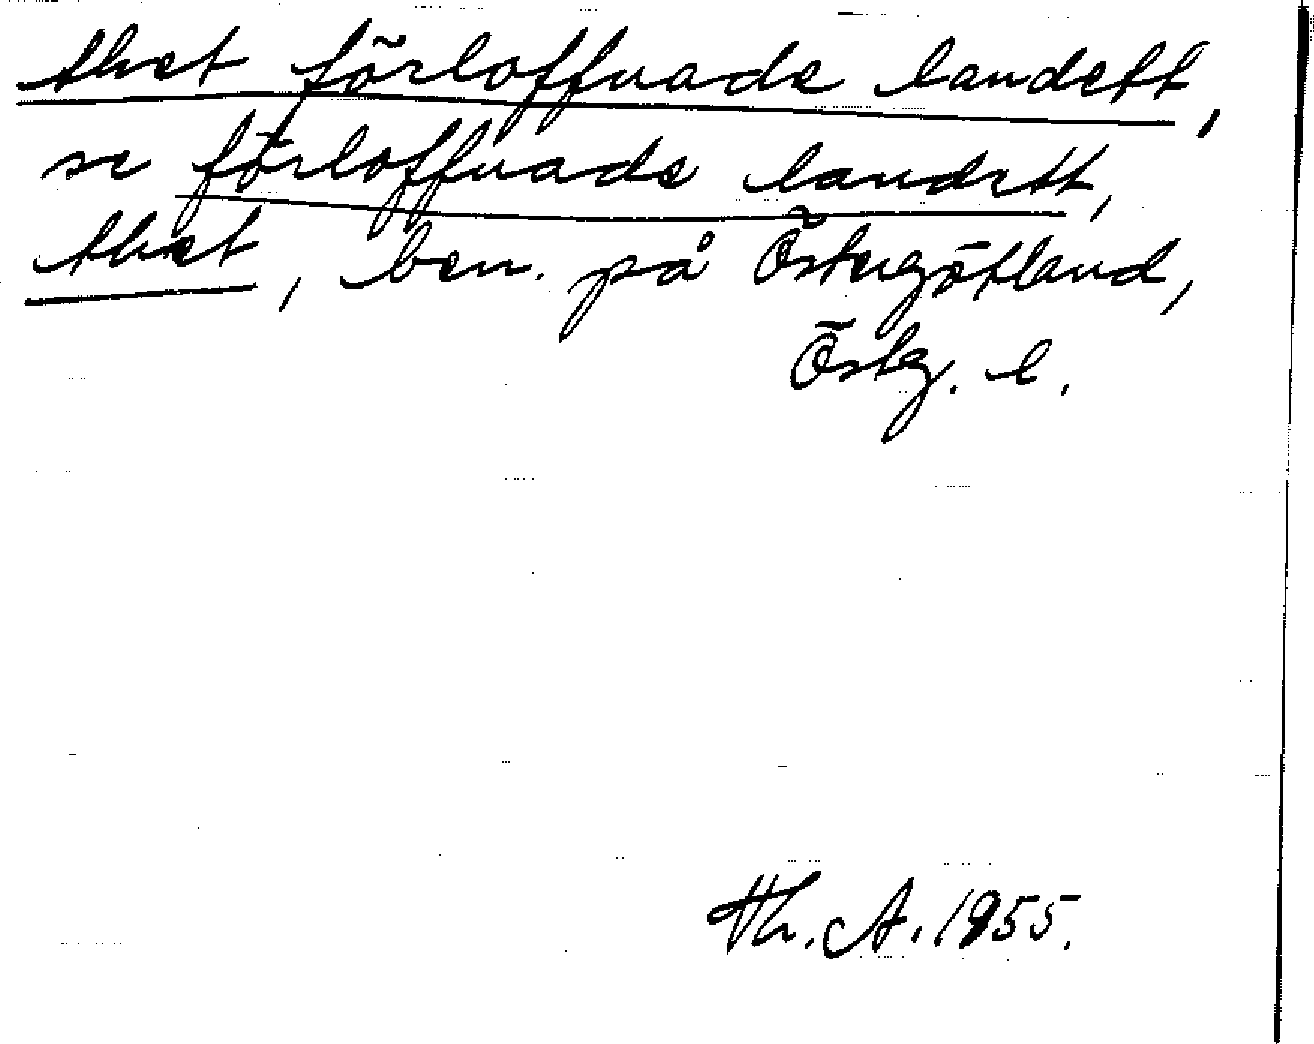 thet förloffuade landett,
se förloffuade landett,
thet, ben. på Östergötland,
Östg. l.
Th. A. 1955.